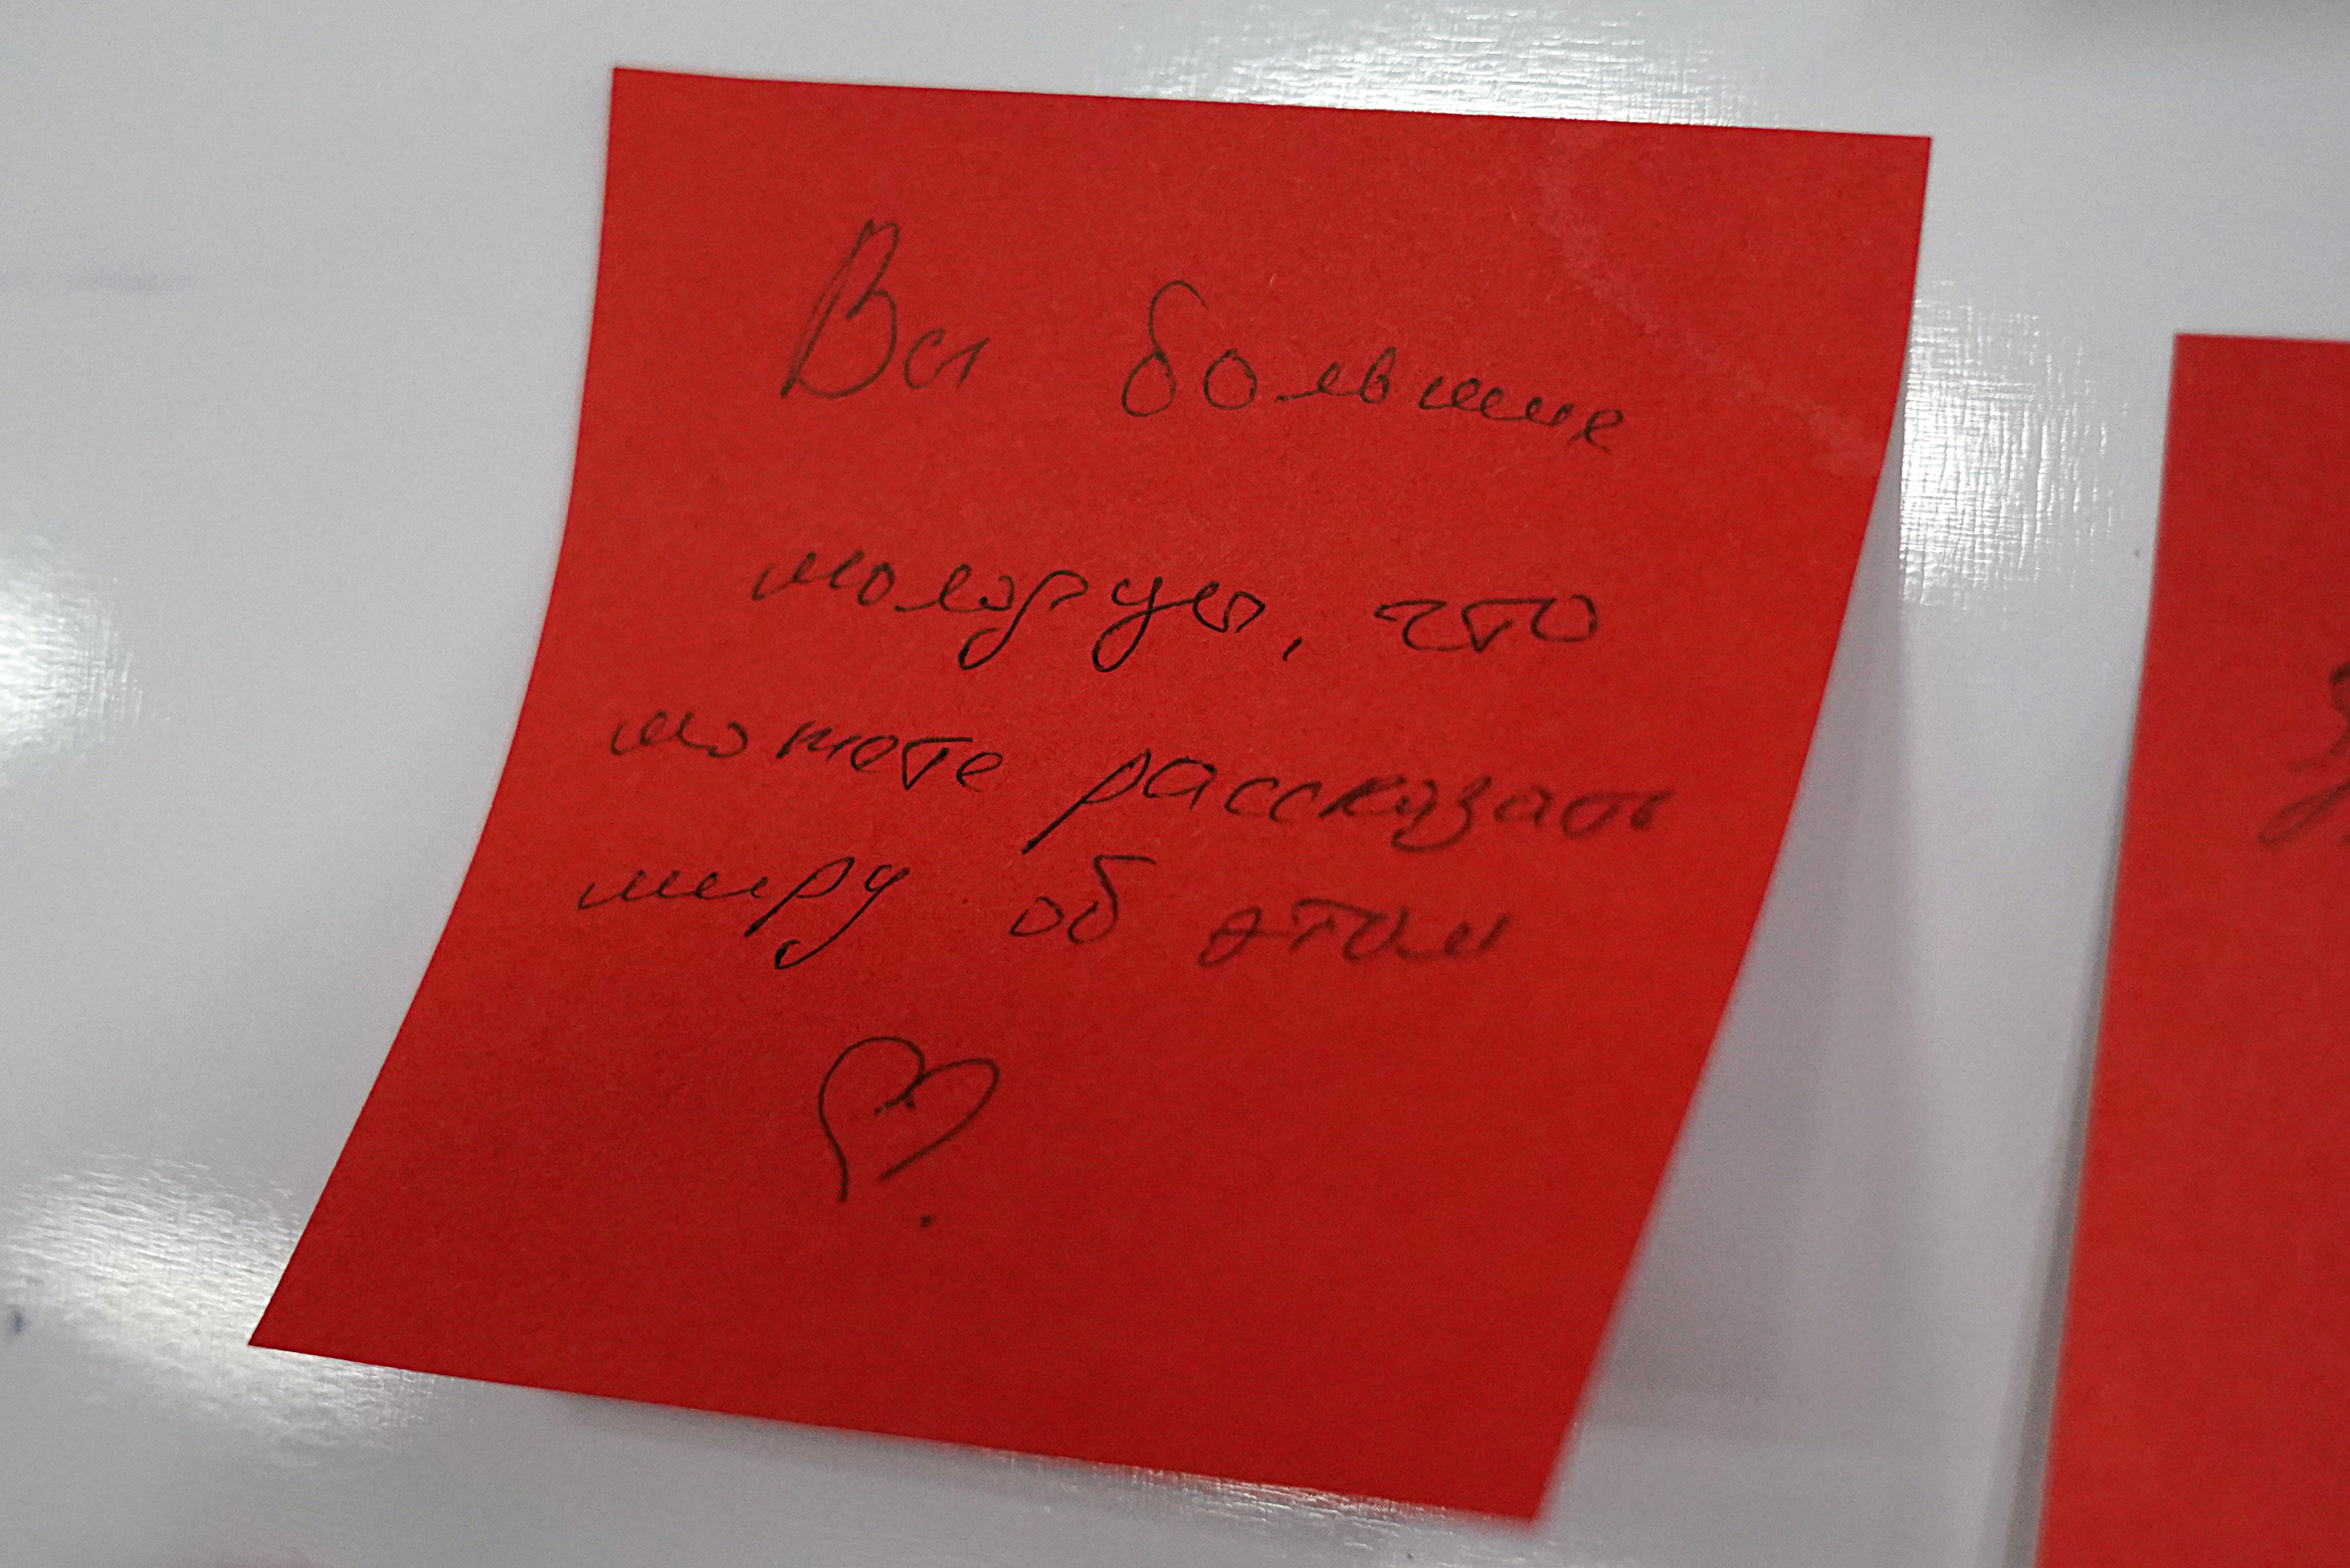 Вы большие
молодцы, что
можете рассказать
миру об этом